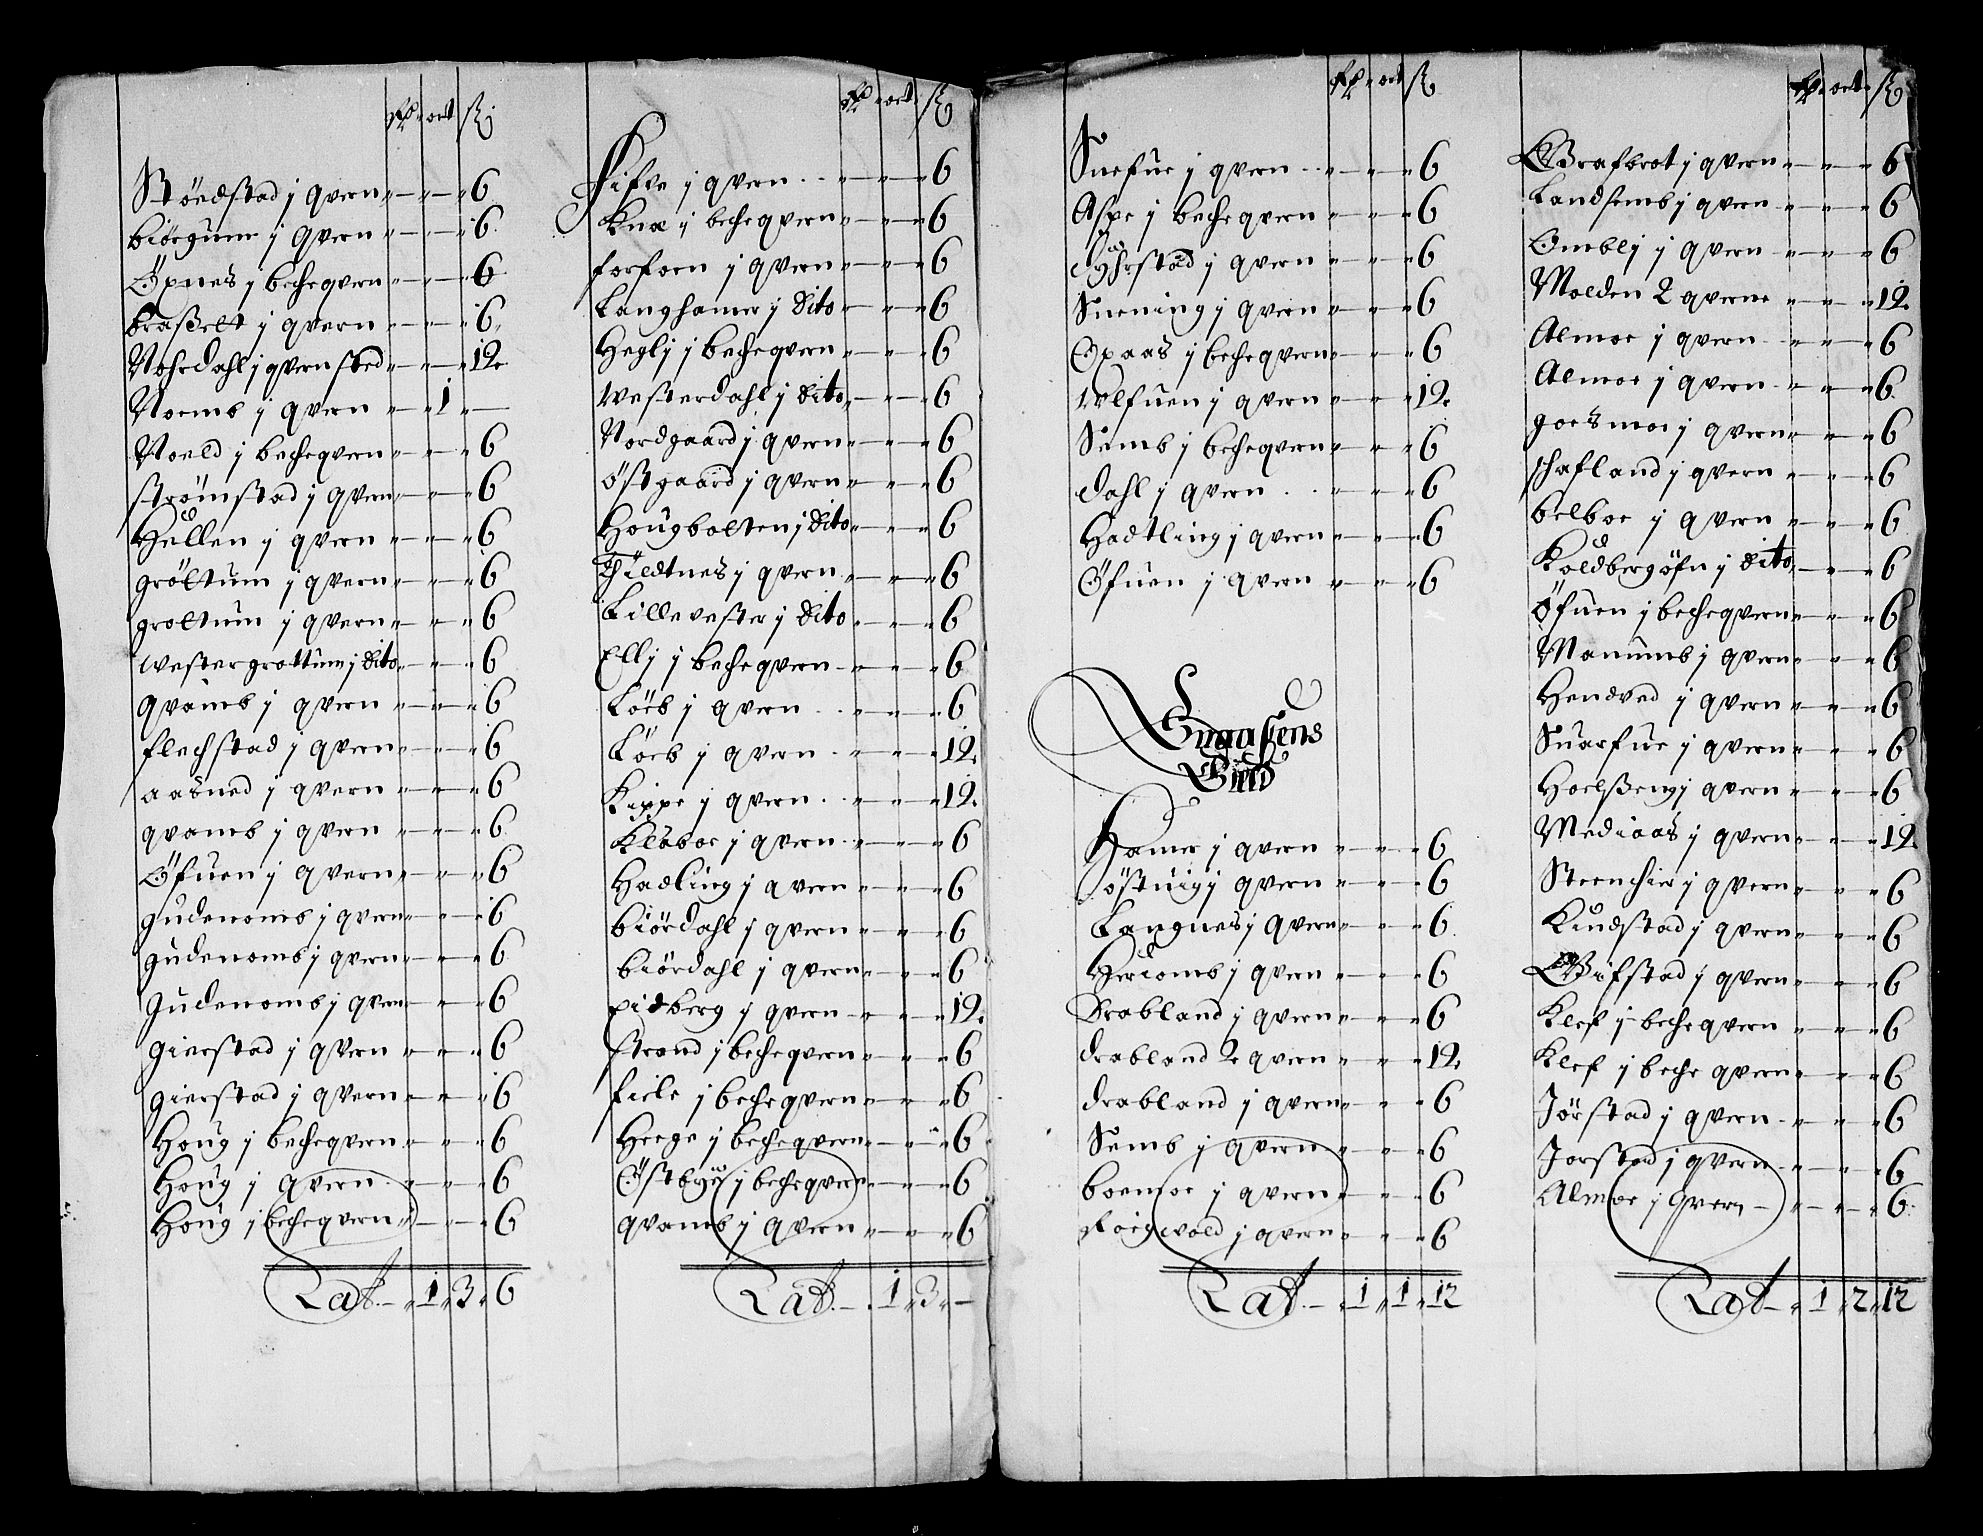 ort
Stördstad j qvern " — " — " 6
biörgum j qvern " — " — " 6
Öxnes j becheqvern " — " — " 6
braßelt j qvern " — " — " 6
Nohrdahl j qvernsted " — " — " 12
Noemb j qvern " — " 1 " —
Noeld j bechqvern " — " — " 6
strömstad j qvern " — " — " 6
Hellen j qvern " — " — " 6
gröltum j qvern " — " — " 6
groltum j qvern " — " — " 6
westergrottum j dito " — " — " 6
qvamb j qvern " — " — " 6
flechstad j qvern " — " — " 6
aasned j qvern " — " — " 6
qvamb j qvern " — " — " 6
Öfuen j qvern " — " — " 6
gudenomb j qvern " — " — " 6
gudenomb j qvern " — " — " 6
gudenomb j qvern " — " — " 6
gierstad j qvern " — " — " 6
gierstad j qvern " — " — " 6
Houg j bechqvern " — " — " 6
Houg j qvern " — " — " 6
Houg j bechqvern " — " — " 6
Lat. — " 1 " 3 " 6
ort
j qvern " — " — " 6
Knæ j bechqvern " — " — " 6
forfoen j qvern " — " — " 6
Langhamer j dito " — " — " 6
Heglj j bechqvern " — " — " 6
westerdahl j dito " — " — " 6
Nordgaard j qvern " — " — " 6
östgaard j qvern " — " — " 6
Hougbolten j dito " — " — " 6
Tildtnes j qvern " — " — " 6
Lillevester j dito " — " — " 6
Ellj j bechqvern " — " — " 6
Löeb j qvern " — " — " 6
Löeb j qvern " — " — " 12
Kippe j qvern " — " — " 12
Klæboe j qvern " — " — " 6
Hadling j qvern " — " — " 6
biördahl j qvern " — " — " 6
biördahl j qvern " — " — " 6
Eidberg j qvern " — " — " 12
strand j bechqvern " — " — " 6
fiele j bechqvern " — " — " 6
Heege j bechqvern " — " — " 6
Östbyè j bechqvern " — " — " 6
qvamb j qvern " — " — " 6
Lat. — " 1 " 3 " —
ort
Snefue j qvern " — " — " 6
Aspe j bechqvern " — " — " 6
dyhrstad j qvern " — " — " 6
Snening j qvern " — " — " 6
Oxaas j bechqvern " — " — " 6
Wolfuen j qvern " — " — " 12
Semb j bechqvern " — " — " 6
dahl j qvern " — " — " 6
Hadtling j qvern " — " — " 6
Öfuen j qvern " — " — " 6
Snaasens
Gield
Hamer j qvern " — " — " 6
östuig j qvern " — " — " 6
Langnes j qvern " — " — " 6
Heriomb j qvern " — " — " 6
drabland j qvern " — " — " 6
drabland 2 qvern " — " — " 12
drabland j qvern " — " — " 6
Semb j qvern " — " — " 6
boemoe j qvern " — " — " 6
Foigwold j qvern " — " — " 6
Lat. — " 1 " 1 " 12
ort
Grafbrot j qvern " — " — " 6
Landsemb j qvern " — " — " 6
Omblj j qvern " — " — " 6
Molden 2 qverne " — " — " 12
Almoe j qvern " — " — " 6
Almoe j qvern " — " — " 6
goesmoe j qvern " — " — " 6
schafland j qvern " — " — " 6
belboe j qvern " — " — " 6
Koldbergöfn j dito " — " — " 6
Öfuen j bechqvern " — " — " 6
Manumb j qvern " — " — " 6
Hendved j qvern " — " — " 6
Snarfue j qvern " — " — " 6
Hoelßeng j qvern " — " — " 6
Mediaas j qvern " — " — " 12
Steenchier j qvern " — " — " 6
Kuudstad j qvern " — " — " 6
Gifstad j qvern " — " — " 6
Klef j bechqvern " — " — " 6
Klef j beche qvern " — " — " 6
Jörstad j qvern " — " — " 6
Jorstad j qvern " — " — " 6
Almoe j qvern " — " — " 6
Lat — " 1 " 2 " 12